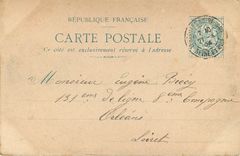 RÉPUBLIQUE FRANÇAISE
CARTE POSTALE
Ce côté est exclusivement réservé à l'adresse
Monsieur Eugène
131ème de ligne 8ème Compagnie
Orléans
Loiret